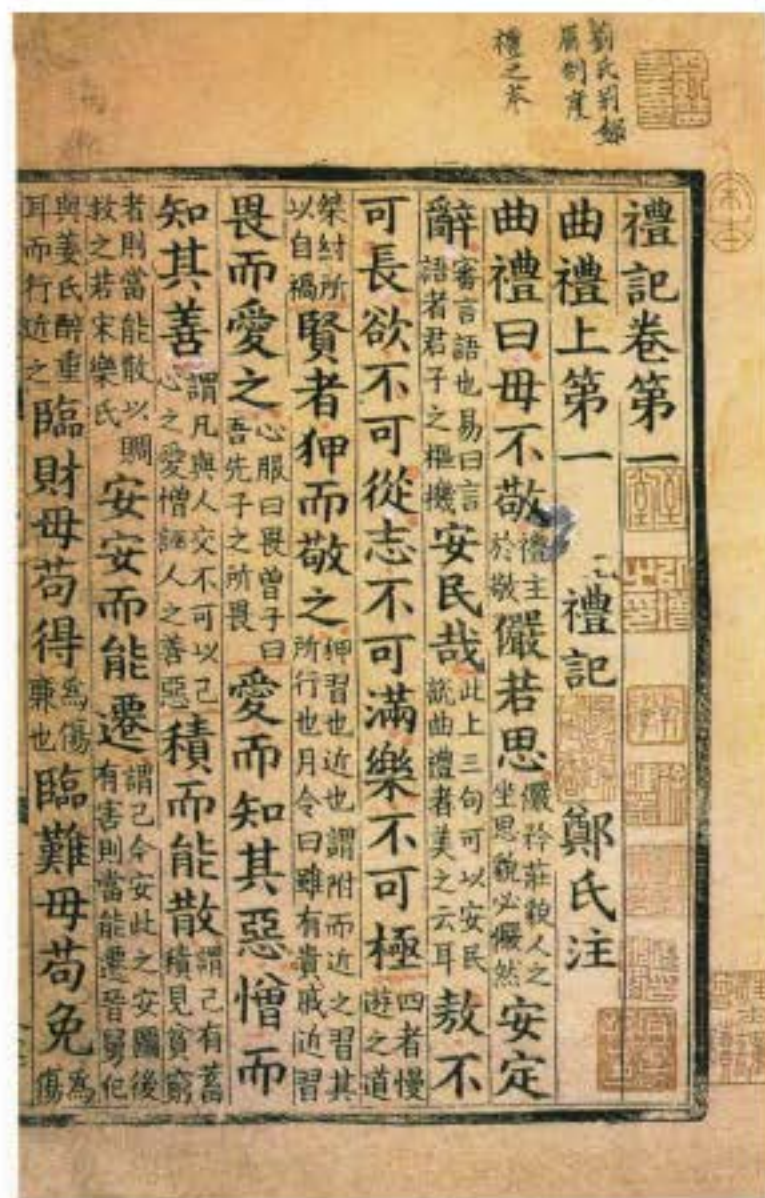 劉氏別錄
屬制度
禮之本
禮記卷第一
曲禮上第一 禮記 鄭氏注
曲禮曰毋不敬禮主於敬儼若思儼矜莊貌人之坐思貌必儼然安定
辭審言語也易曰言語者君子之樞機安民哉此上三句可以安民說曲禮者美之云耳敖不
可長欲不可從志不可滿樂不可極四者慢遊之道
桀紂所以自禍賢者狎而敬之狎習也近也謂附而近之習其所行也月令曰雖有貴戚近習
畏而愛之心服曰畏曾子曰吾先子之所畏愛而知其惡憎而
知其善謂凡與人交不可以己心之愛憎誣人之善惡積而能散謂己有蓄積見貧窮
者則當能散以賙救之若宋樂氏安安而能遷謂己今安此之安圖後有害則當能遷晉舅犯
與姜氏醉重耳而行近之臨財毋苟得為傷廉也臨難毋苟免為傷